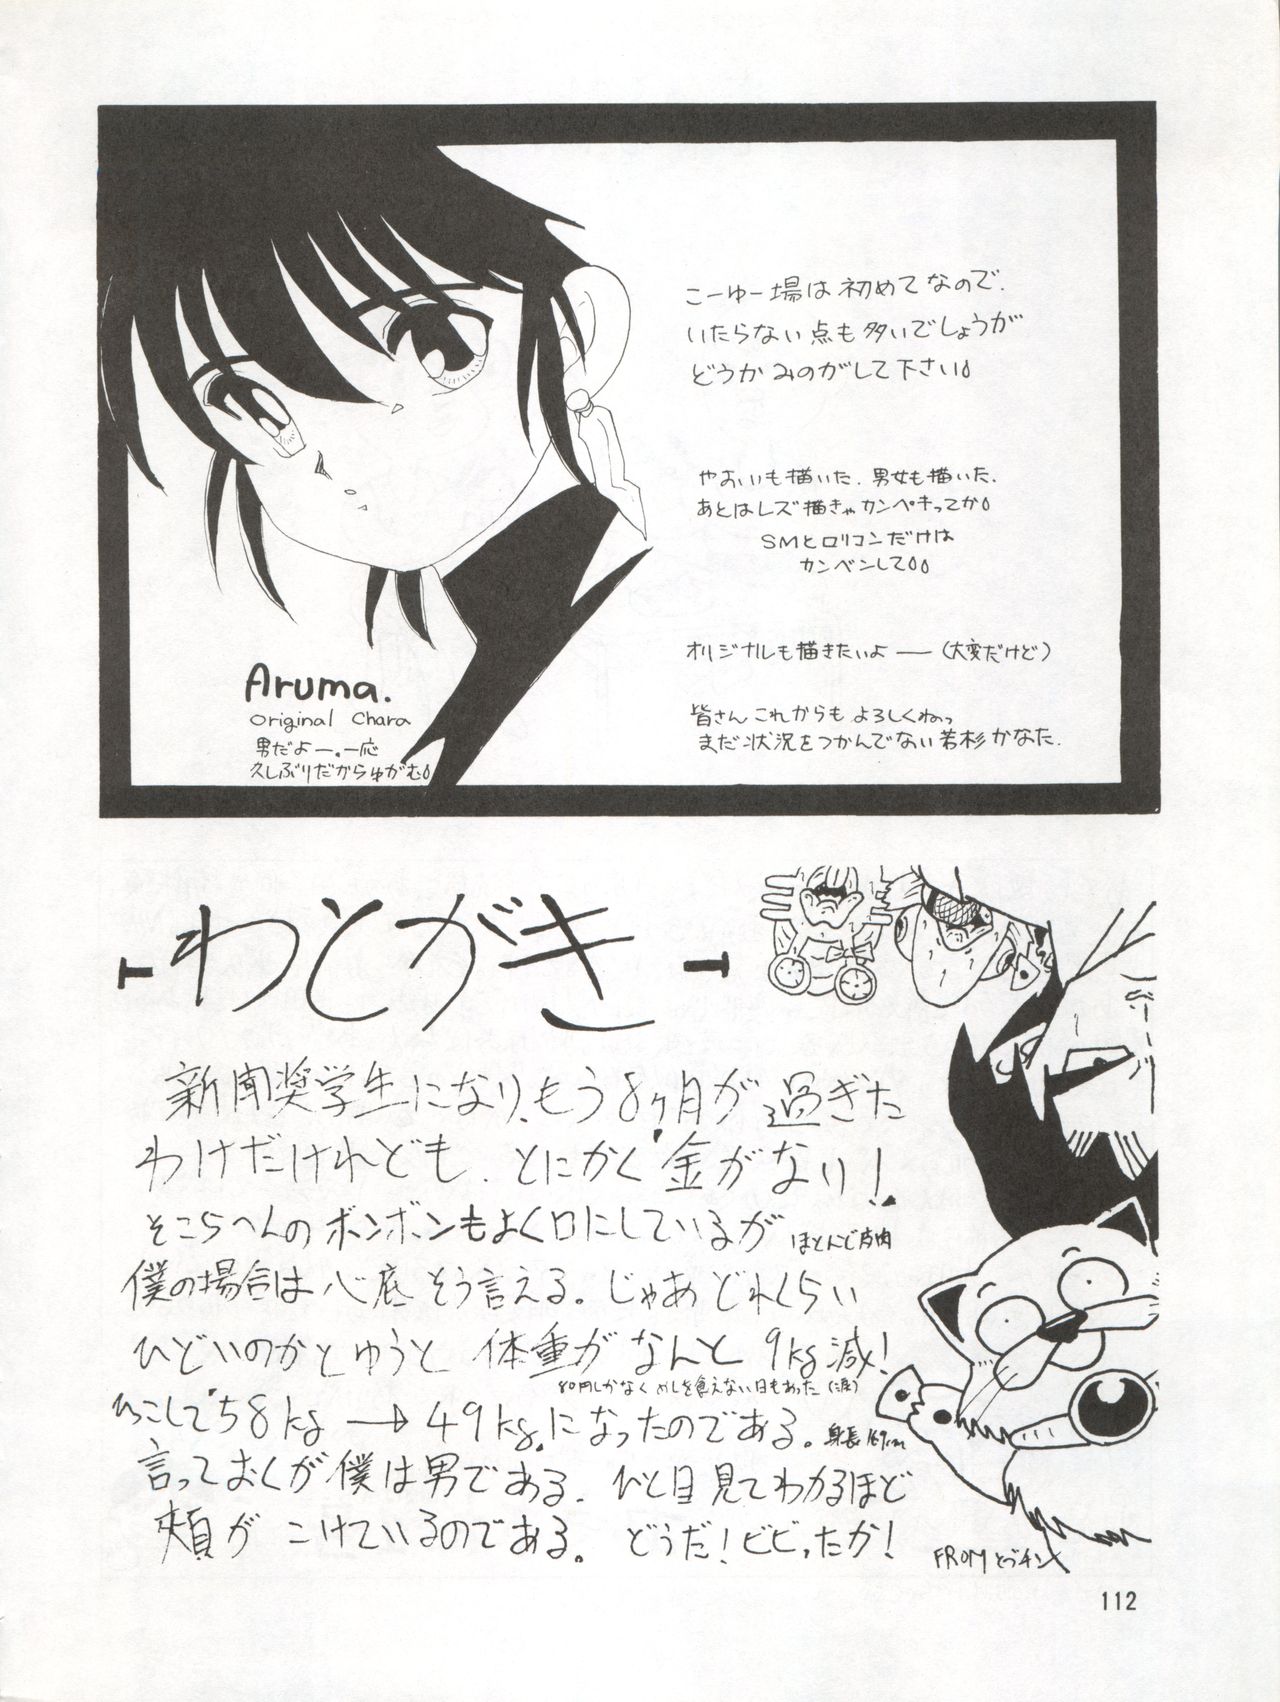 こーゆー場は初めてなので.
いたらない点も多いでしょうが
どうかみのがして下さい
やおいも描いた. 男女も描いた.
あとはレズ描きゃカンペキってか
SMとロリコンだけは
カンベンして
オリジナルも描きたいよ――(大変だけど)
皆さんこれからもよろしくねっ
まだ状況をつかんでない若杉かなた.
Aruma.
original chara
男だよー. 一応
久しぶりだからゆがむ
わとがき
新聞奨学生になり、もう8ヶ月が過ぎた
わけだけれども、とにかく金がなり!
そこらへんのボンボンもよく口にしているが ほとんど皮肉
僕の場合は心底そう言える。じゃあどれくらい
ひどいのかとゆうと 体重がなんと9kg減!
80円しかなくめしを食えない日もあった(涙)
ひっこしして58kg→49kg.になったのである。身長169cm
言っておくが僕は男である. ひと目見てわかるほど
頬がこけているのである。どうだ!ビビったか!
FROM とづチン
112